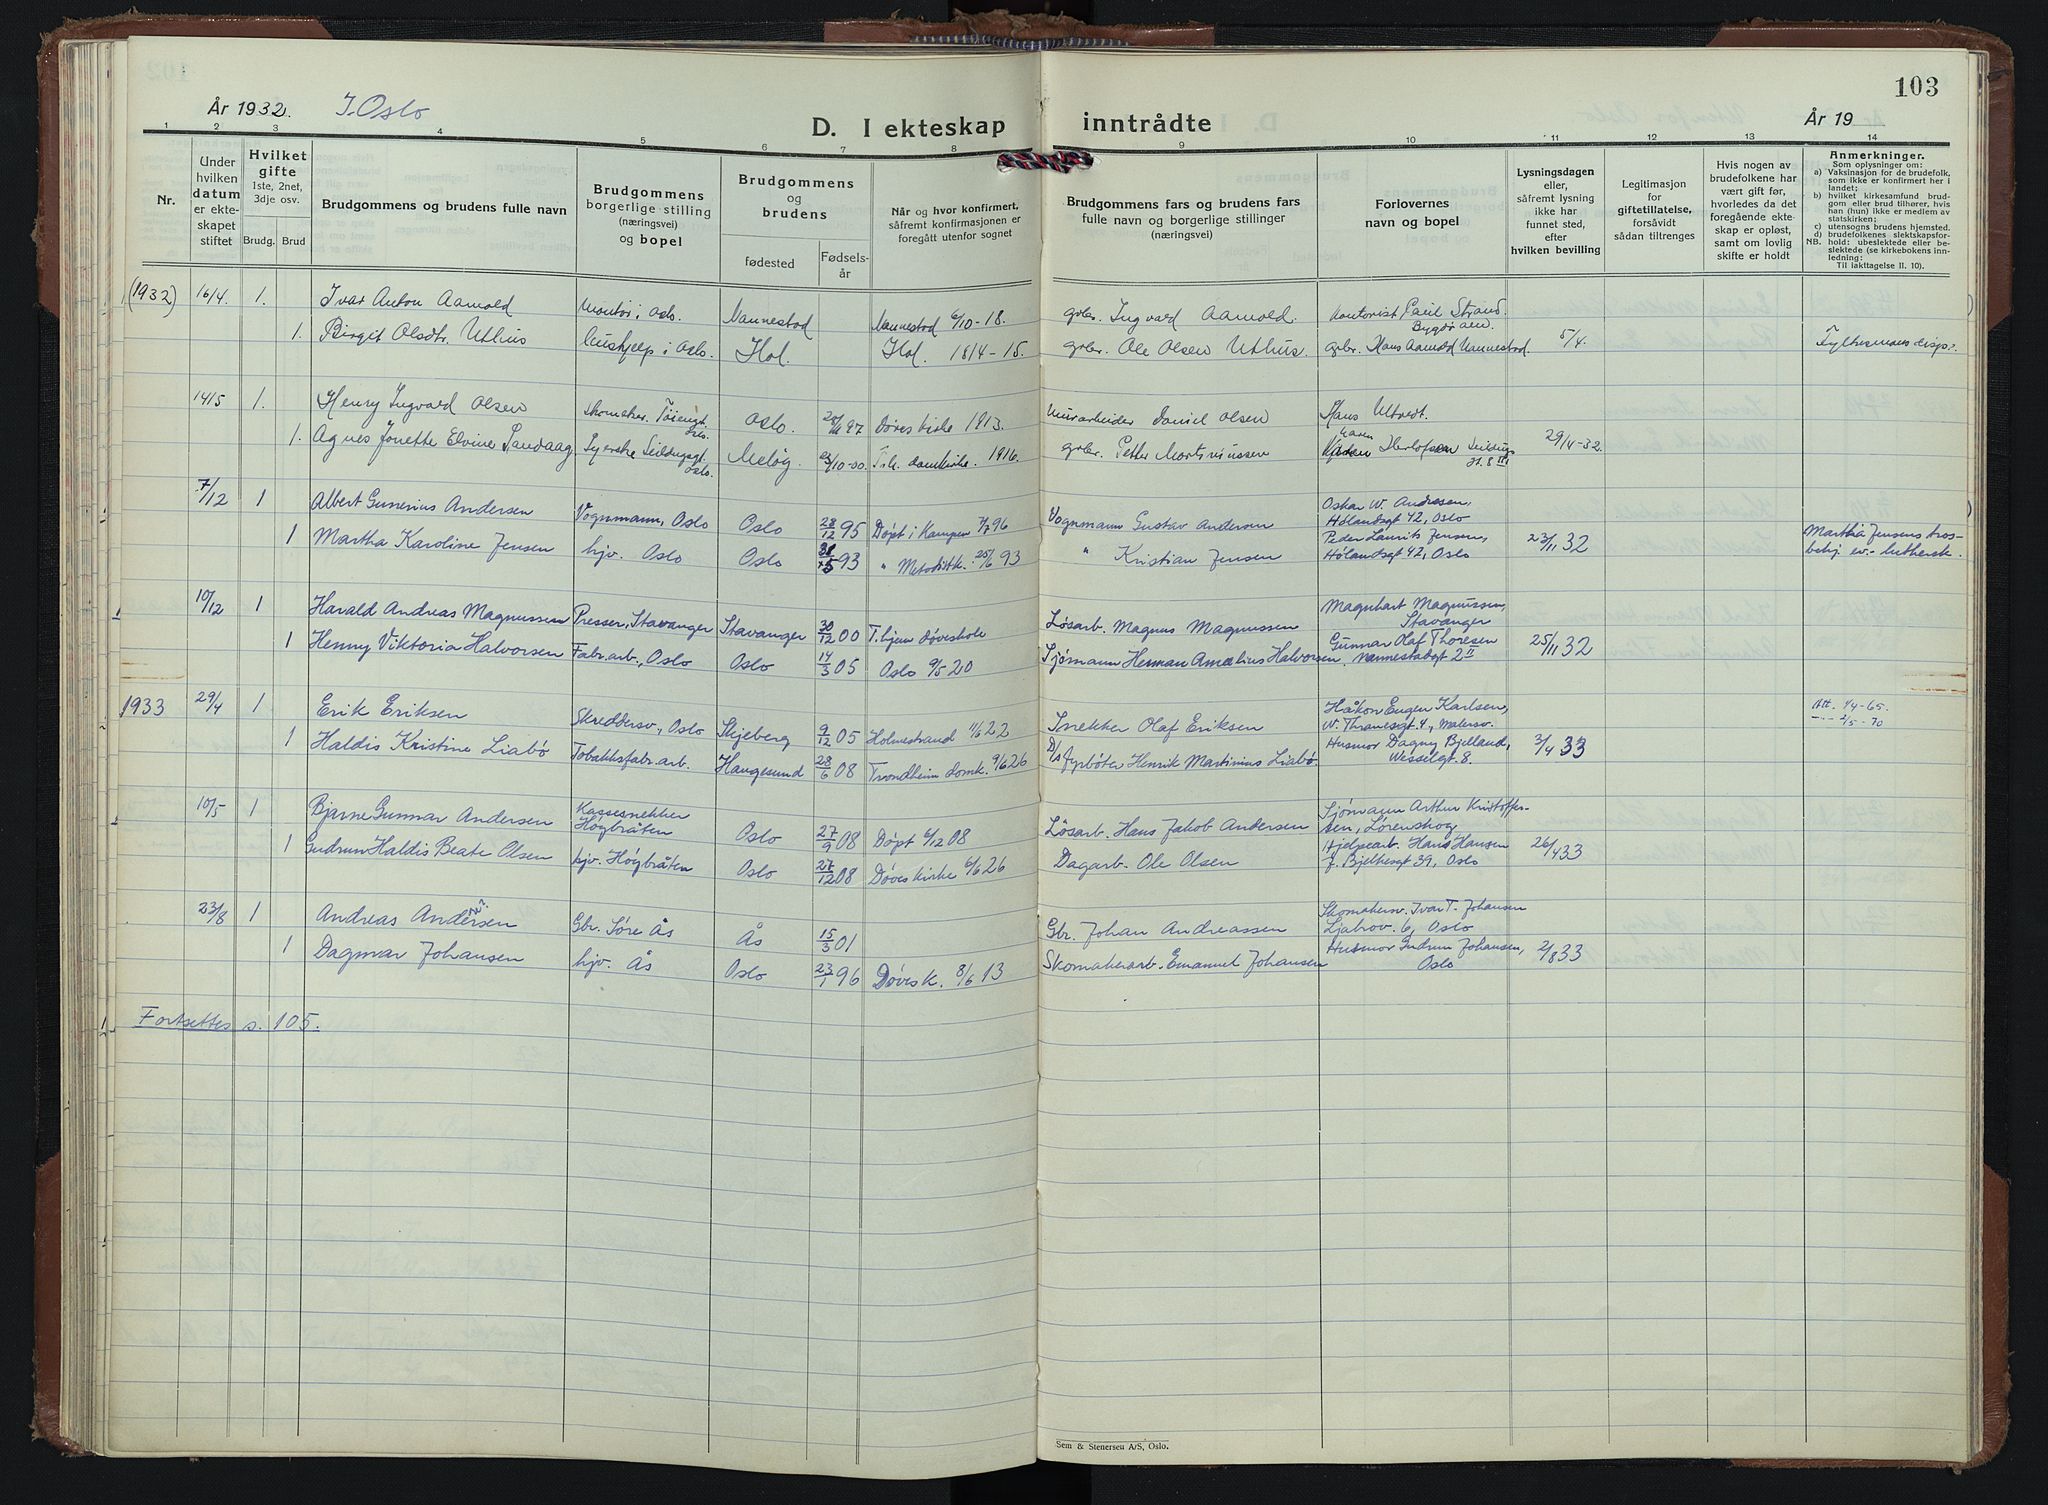 103
År 1932. I Oslo
D. I ekteskap inntrådte
År 19
1 2 3 4 5 6 7 8 9 10 11 12 13 14
Nr.
Under hvilken datum er ekteskapet stiftet
Hvilket gifte
1ste, 2net, 3dje osv.
Brudg. Brud
Brudgommens og brudens fulle navn
Brudgommens borgerlige stilling (næringsvei) og bopel
Brudgommens og brudens
fødested
Fødselsår
Når og hvor konfirmert, såfremt konfirmasjonen er foregått utenfor sognet
Brudgommens fars og brudens fars fulle navn og borgerlige stillinger (næringsvei)
Forlovernes navn og bopel
Lysningsdagen eller, såfremt lysning ikke har funnet sted, efter hvilken bevilling
Legitimasjon for giftetillatelse, forsåvidt sådan tiltrenges
Hvis nogen av brudefolkene har vært gift før, hvorledes da det foregående ekteskap er opløst, samt om lovlig skifte er holdt
Anmerkninger.
Som oplysninger om:
a) Vaksinasjon for de brudefolk, som ikke er konfirmert her i landet;
b) hvilket kirkesamfund brudgom eller brud tilhører, hvis han (hun) ikke er medlem av statskirken;
c) utensogns brudens hjemsted.
d) brudefolkenes slektskapsforhold: ubeslektede eller beslektede (se kirkebokens innledning:
NB. Til iakttagelse II. 10).
(1932) 16/4. 1. Ivar Anton Aamold Montør i Oslo. Nannestad Nannestad 6/10-18. grbr. Ingvard Aamold. Kontorist Paul Strand Bygdø alen.
1. Birgit Olsdtr. Uthus hushjelp i Oslo. Hol. Hol. 18/4-15. grbr. Ole Olsen Uthus. grbr. Hans Aamold Nannestad. 5/4. Fylkesmanns disp.
14/5 1. Henry Ingvard Olsen Skomaker. Tøiengt. Oslo. Oslo. 97 Døves kirke 1913. Murarbeider Daniel Olsen Hans Ultvedt.
1. Agnes Jonette Elvine Sandaag Syerske Seildugsgt. Oslo. Meløy. /10-00. Trh. domkirke. 1916. grbr. Petter Martiniussen Karen Herlofsen Seildugsgt. 8 III 29/4-32.
7/12 1 Albert Gunerius Andersen Vognmann, Oslo Oslo 28/12 95 Døpt i Kampen 7/7 96 Vognmann Gustav Andersen Oskar W. Andresen, Hølandsgt 42, Oslo
1 Martha Karoline Jensen hjv. Oslo Oslo 93 " Metodistk. 25/6 93 " Kristian Jensen Peder Laurits Jensen, Hølandsgt 42, Oslo 23/11 32 Martha Jensens trosbekj. ev.-luthersk.
10/12 1 Harald Andreas Magnussen Presser, Stavanger Stavanger 30/12 00 T.hjem døveskole Løsarb. Magnus Magnussen Magnhart Magnussen, Stavanger
1 Henny Viktoria Halvorsen Fabr.arb., Oslo Oslo 14/3 05 Oslo 9/5 20 Sjømann Herman Amalius Halvorsen Gunnar Olaf Thoresen Nannestadgt 2 II 25/11 32
1933 29/4 1 Erik Eriksen Skreddersv, Oslo Skjeberg 9/12 05 Holmestrand 11/6 22 Snekker Olaf Eriksen Håkon Eugen Karlsen, W. Thranesgt. 4, Malersv. Att. 1/4-65.
1 Haldis Kristine Liabø Tobakksfabr.arb. Haugesund 28/6 08 Trondheim domk. 9/6 26 D/s fyrbøter Henrik Martinius Liabø Husmor Dagny Bjelland, Wesselgt. 8. 3/4 33 -"- 2/5-70
10/5 1 Bjarne Gunnar Andersen Kassesnekker Høybråten Oslo 27/9 08 Døpt 6/12 08 Løsarb. Hans Jakob Andersen Sjømann Arthur Kristoffersen, Lørenskog
1 Gudrun Haldis Beate Olsen hjv. Høybråten Oslo 27/12 08 Døves kirke 6/6 26 Dagarb. Ole Olsen Hjelpearb. Hans Hansen J. Bjelkesgt 39, Oslo 26/4 33
23/8 1 Andreas Andersen Gbr. Søre Ås Ås 15/3 01 Gbr. Johan Andreassen Skomakersv. Ivar T. Johansen Ljabrov. 6, Oslo
1 Dagmar Johansen hjv. Ås Oslo 23/1 96 Døvesk. 8/6 13 Skomakerarb. Emanuel Johansen Husmor Gudrun Johansen, Oslo 2/8 33
Fortsettes s. 105.
Sem & Stenersen A/S, Oslo.